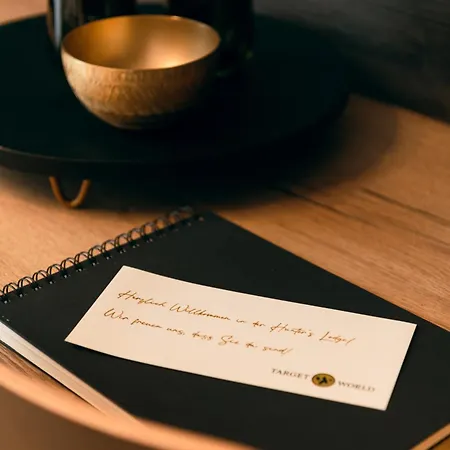 Herzlich Willkommen in der Hunter's Lodge!
Wir freuen uns, dass Sie da sind!
TARGET WORLD